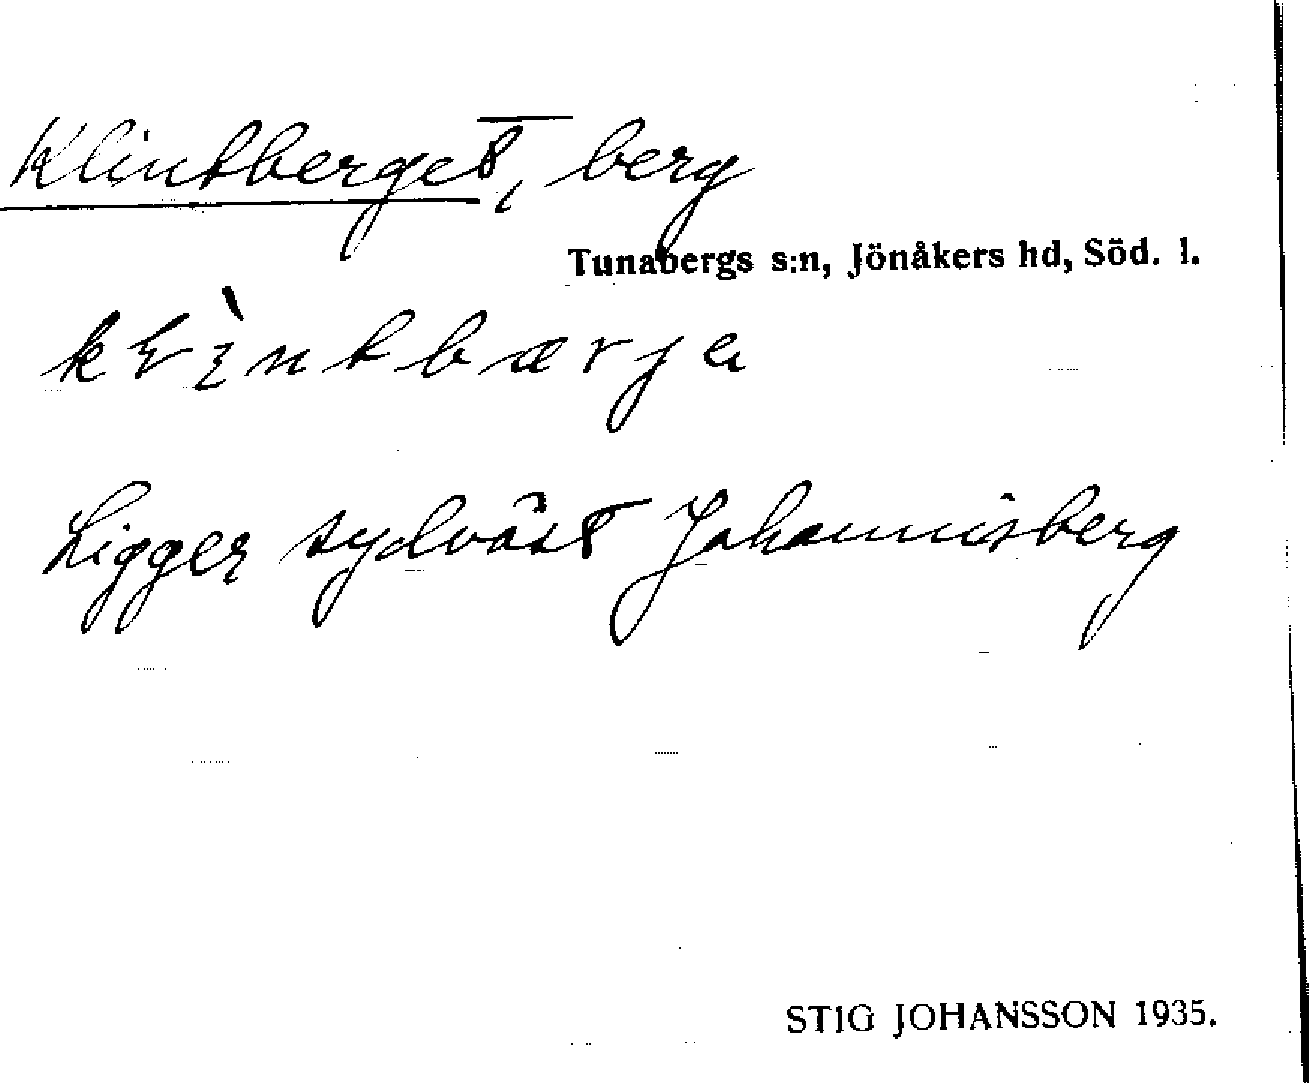 Klintberget, berg
Tunabergs s:n, Jönåkers hd, Söd. l.
Ligger sydväst Johannisberg
STIG JOHANSSON 1935.